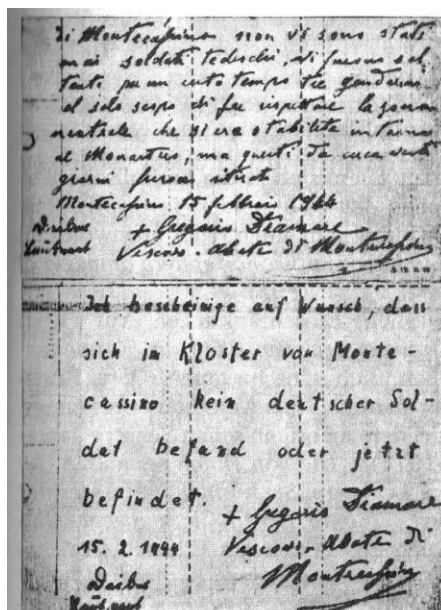 di Montecassino non vi sono stati
mai soldati tedeschi, vi furono sol-
tanto per un certo tempo tre gendarmi
al solo scopo di far rispettare la zona
neutrale che si era stabilita intorno
al Monastero, ma questi da circa venti
giorni furono ritirati
Montecassino 15 febbraio 1944
+ Gregorio Diamare
Vescovo-Abate di Montecassino
Deiber
Leutnant
Ich bescheinige auf Wunsch, dass
sich im Kloster von Monte-
cassino kein deutscher Sol-
dat befand oder jetzt
befindet.
+ Gregorio Diamare
15. 2. 1944 Vescovo-Abate di
Montecassino
Deiber
Leutnant